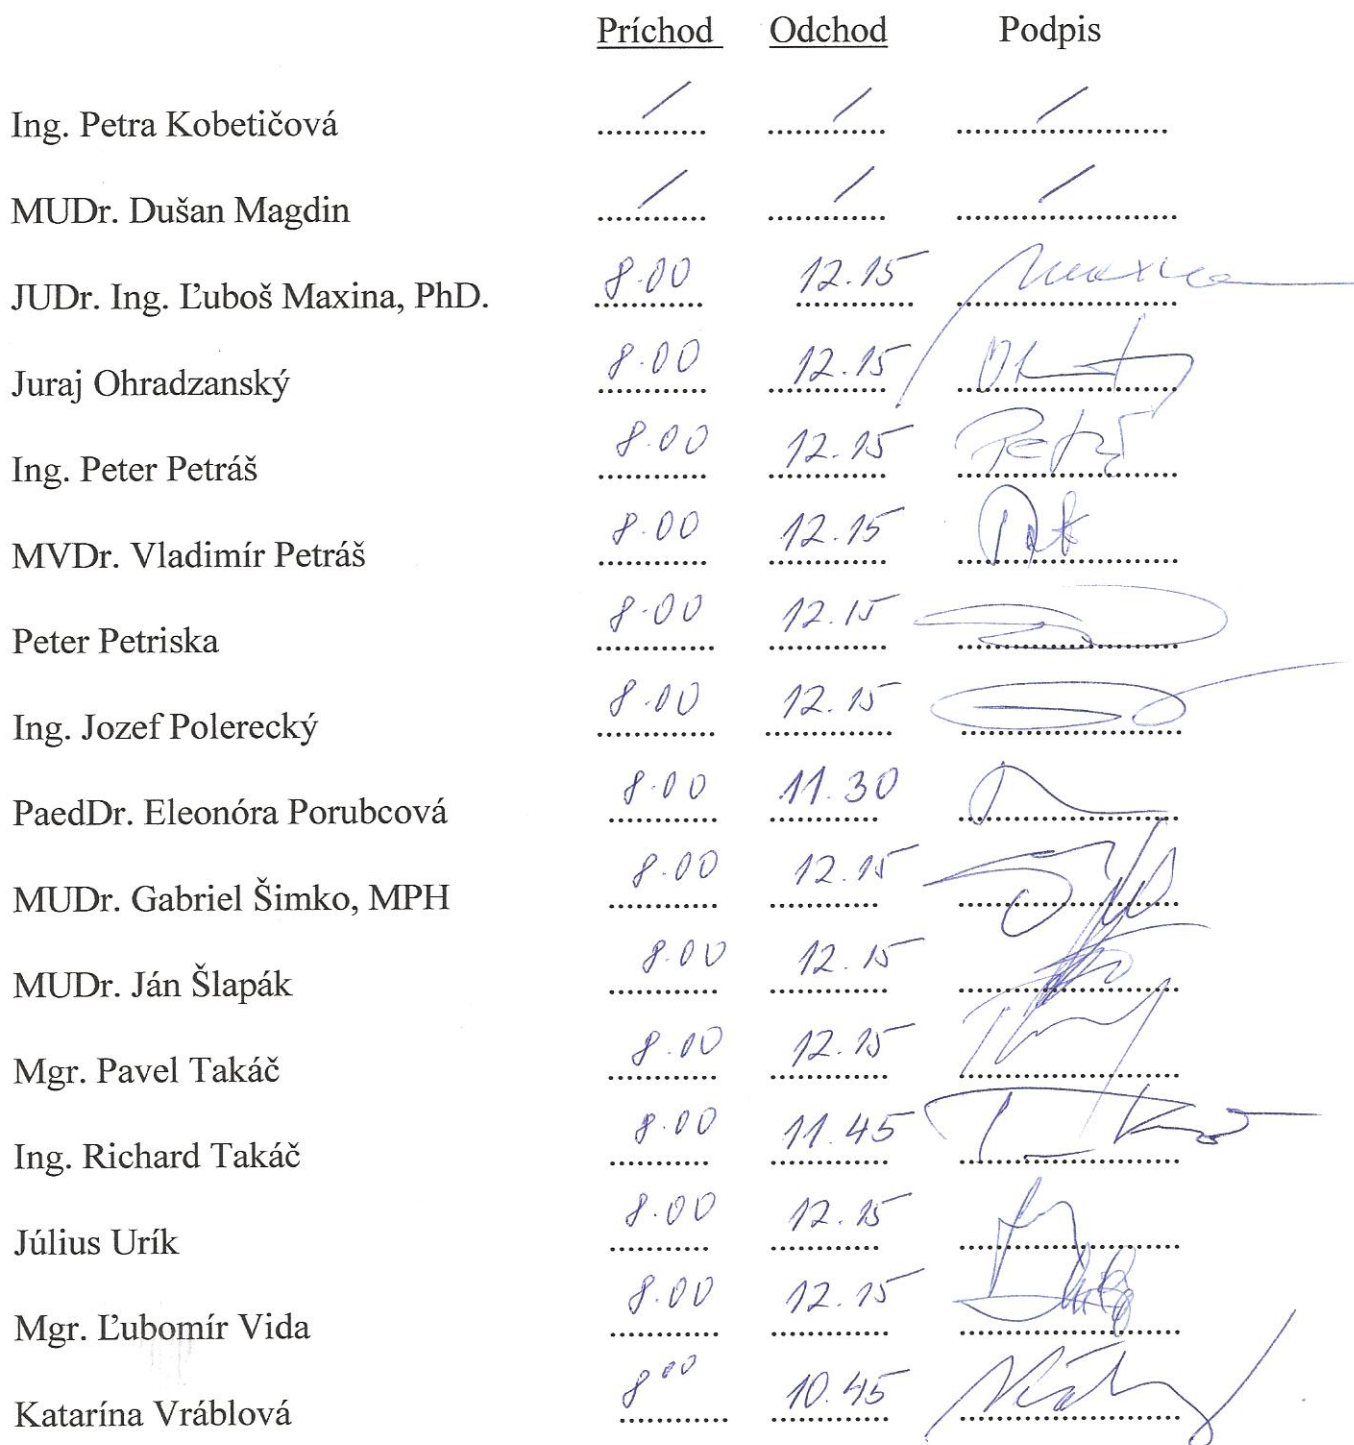 Príchod Odchod Podpis
Ing. Petra Kobetičová ............ / ............. / ....................... /
MUDr. Dušan Magdin ............ / ............. / ........................ /
JUDr. Ing. Ľuboš Maxina, PhD. 8.00 12.15 Maxina
Juraj Ohradzanský 8.00 12.15
Ing. Peter Petráš 8.00 12.15 Petráš
MVDr. Vladimír Petráš 8.00 12.15
Peter Petriska 8.00 12.15
Ing. Jozef Polerecký 8.00 12.15
PaedDr. Eleonóra Porubcová 8.00 11.30
MUDr. Gabriel Šimko, MPH 8.00 12.15
MUDr. Ján Šlapák 8.00 12.15
Mgr. Pavel Takáč 8.00 12.15
Ing. Richard Takáč 8.00 11.45
Július Urík 8.00 12.15
Mgr. Ľubomír Vida 8.00 12.15
Katarína Vráblová 8 00 10.45